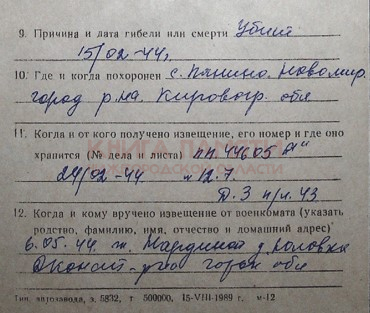 9. Причина и дата гибели или смерти Убит
15/02-44г.
10. Где и когда похоронен с. Панино. Новомир
город р-на. Кировогр. обл
11. Когда и от кого получено извещение, его номер и где оно
хранится (№ дела и листа) пп. 44605 "А"
24/02-44 № 12.7.
Д. 3 п/л. 43
12. Когда и кому вручено извещение от военкомата (указать
родство, фамилию, имя, отчество и домашний адрес)
6.05.44. ж. д.
р-на обл
Тип. автозавода, з. 5832, т 500000, 15-VIII-1989 г. м-12